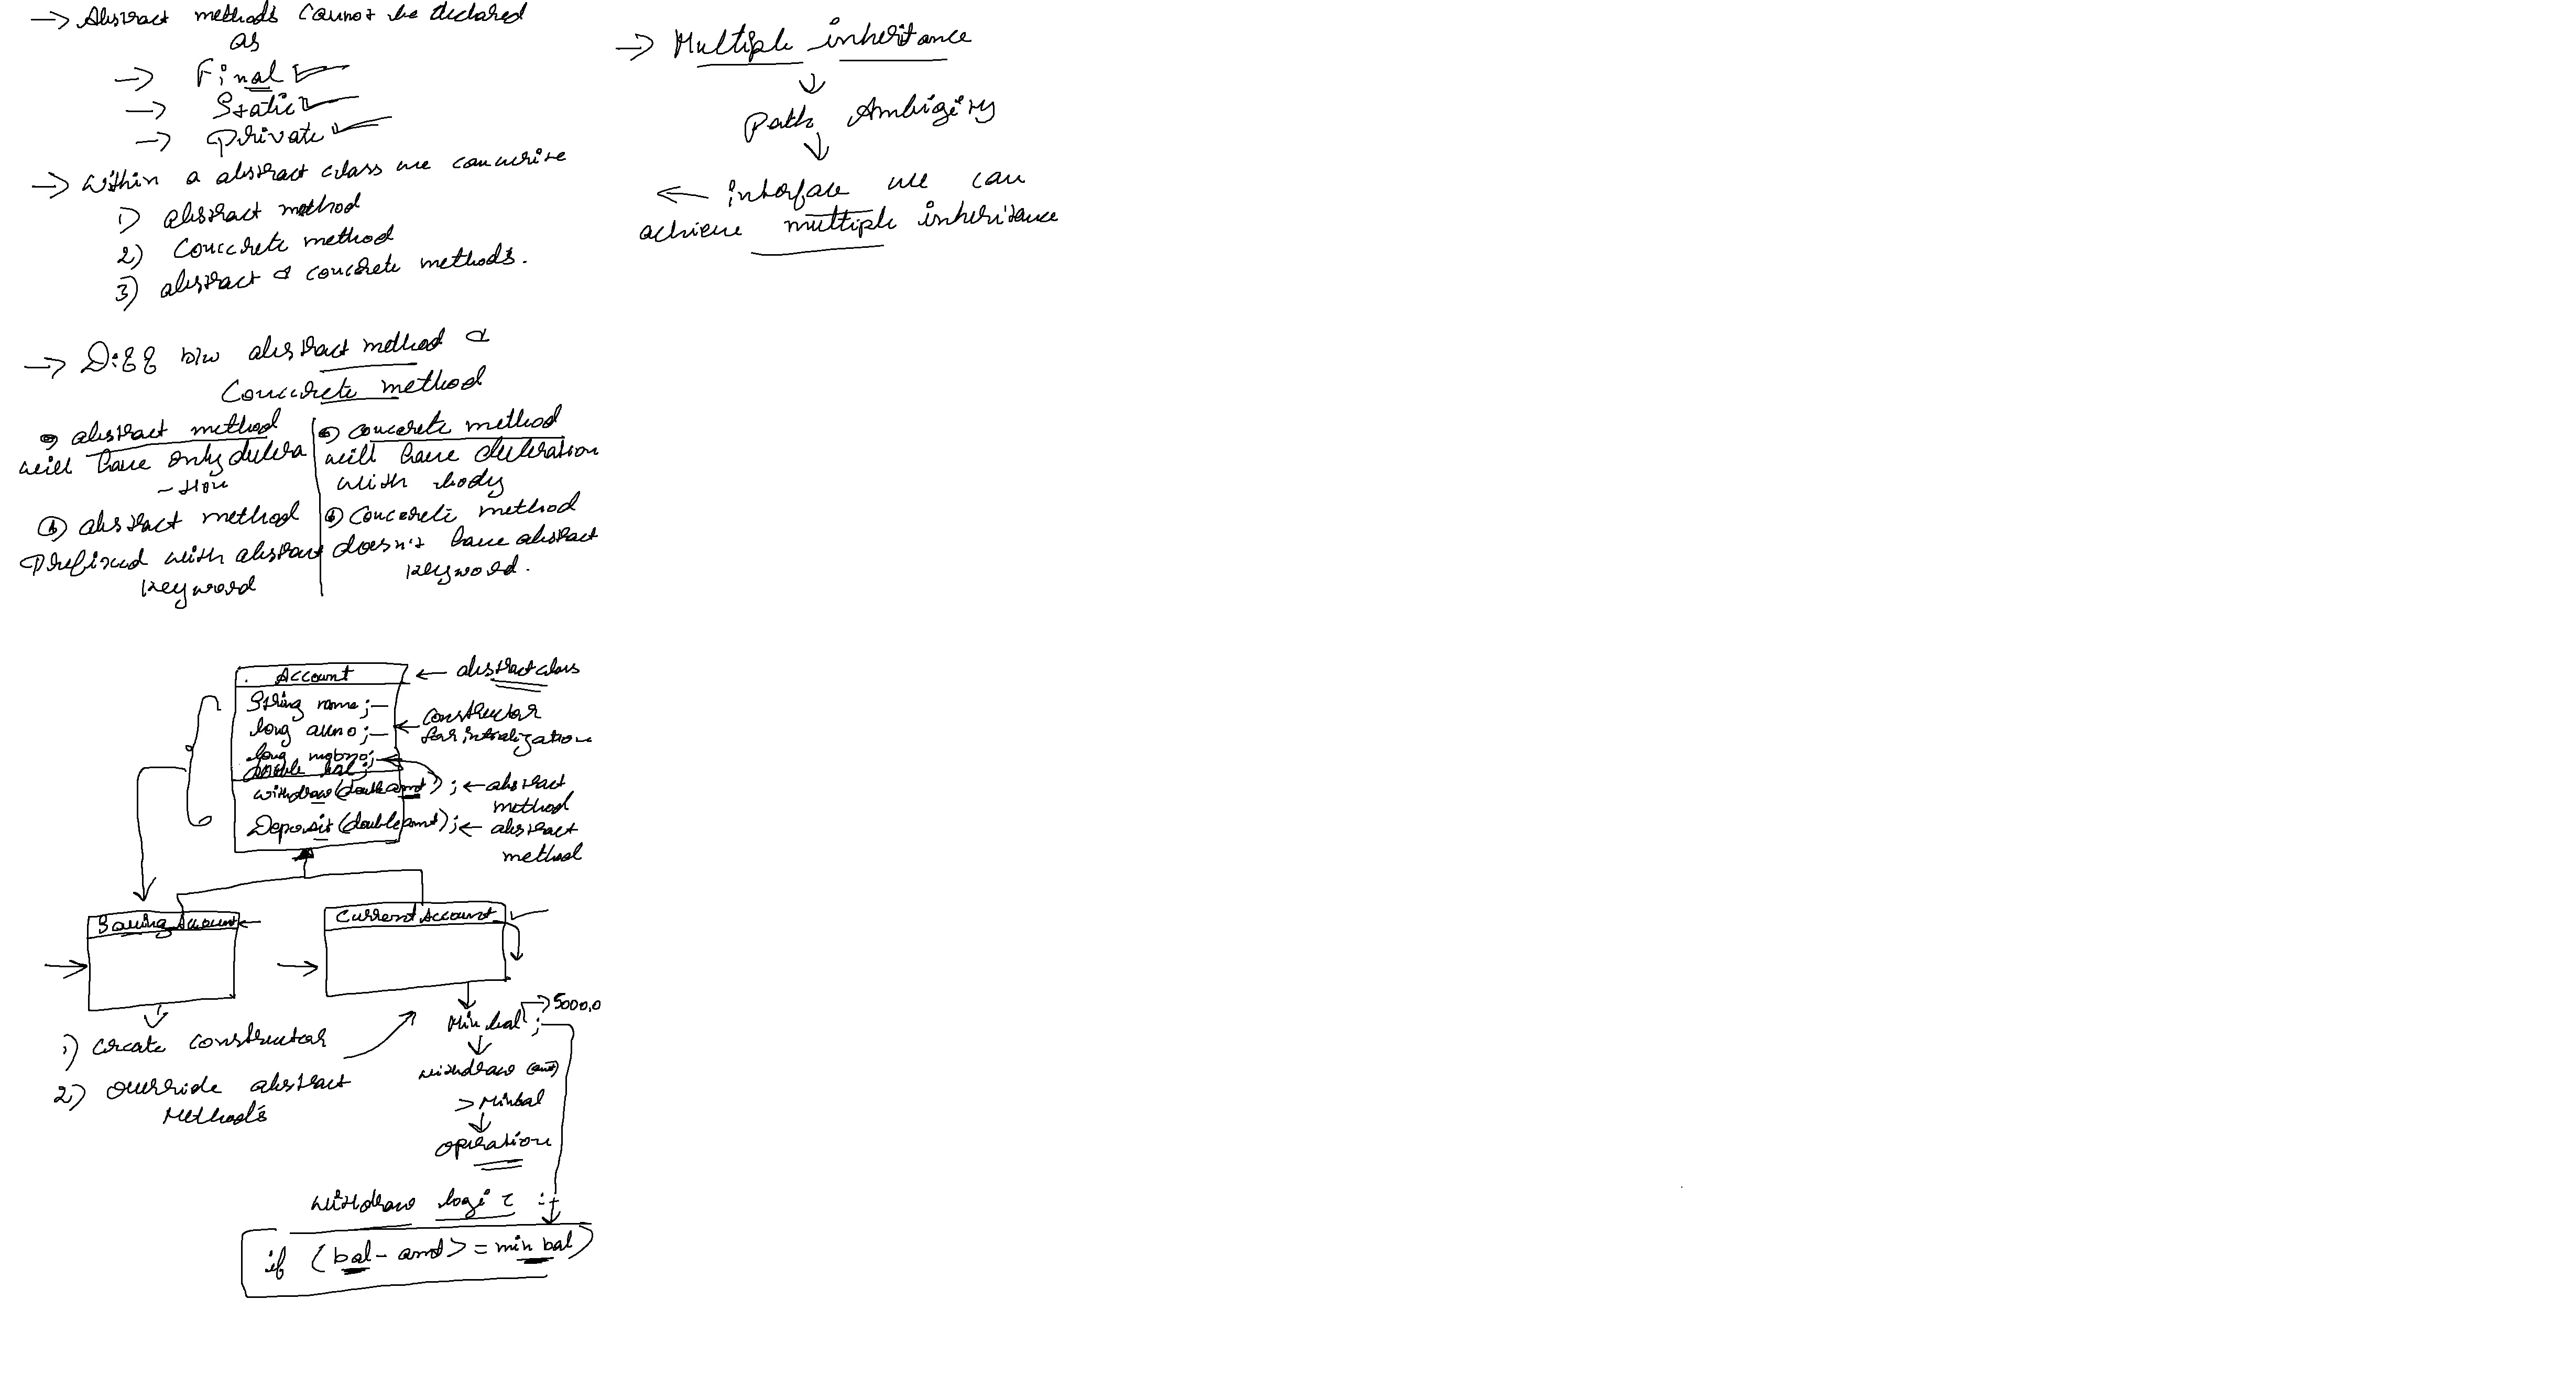 → Abstract methods cannot be declared
as
→ Final
→ Static
→ Private
→ Within a abstract class we can write
1) abstract method
2) Conccrete method
3) abstract & concrete methods.
→ Diff b/w abstract method &
Conccrete method
a) abstract method
will have only declera
-tion
b) abstract method
Prefixed with abstract
keyword
a) concrete method
will have decleration
with body
b) concrete method
doesn't have abstract
keyword.
Account ← abstract class
String name;
long accno; ← constructor
for intialization
long mobno;
double bal;
withdraw(double amt); ← abstract
method
Deposit(double amt); ← abstract
method
Saving Account
Current Account
1) create constructor
2) override abstract
Methods
Min bal; → 5000.0
withdraw (amt)
> Minbal
operation
withdraw logic :-
if (bal - amt >= min bal)
→ Multiple inheritance
Path Ambigity
← interface we can
achieve multiple inheritance